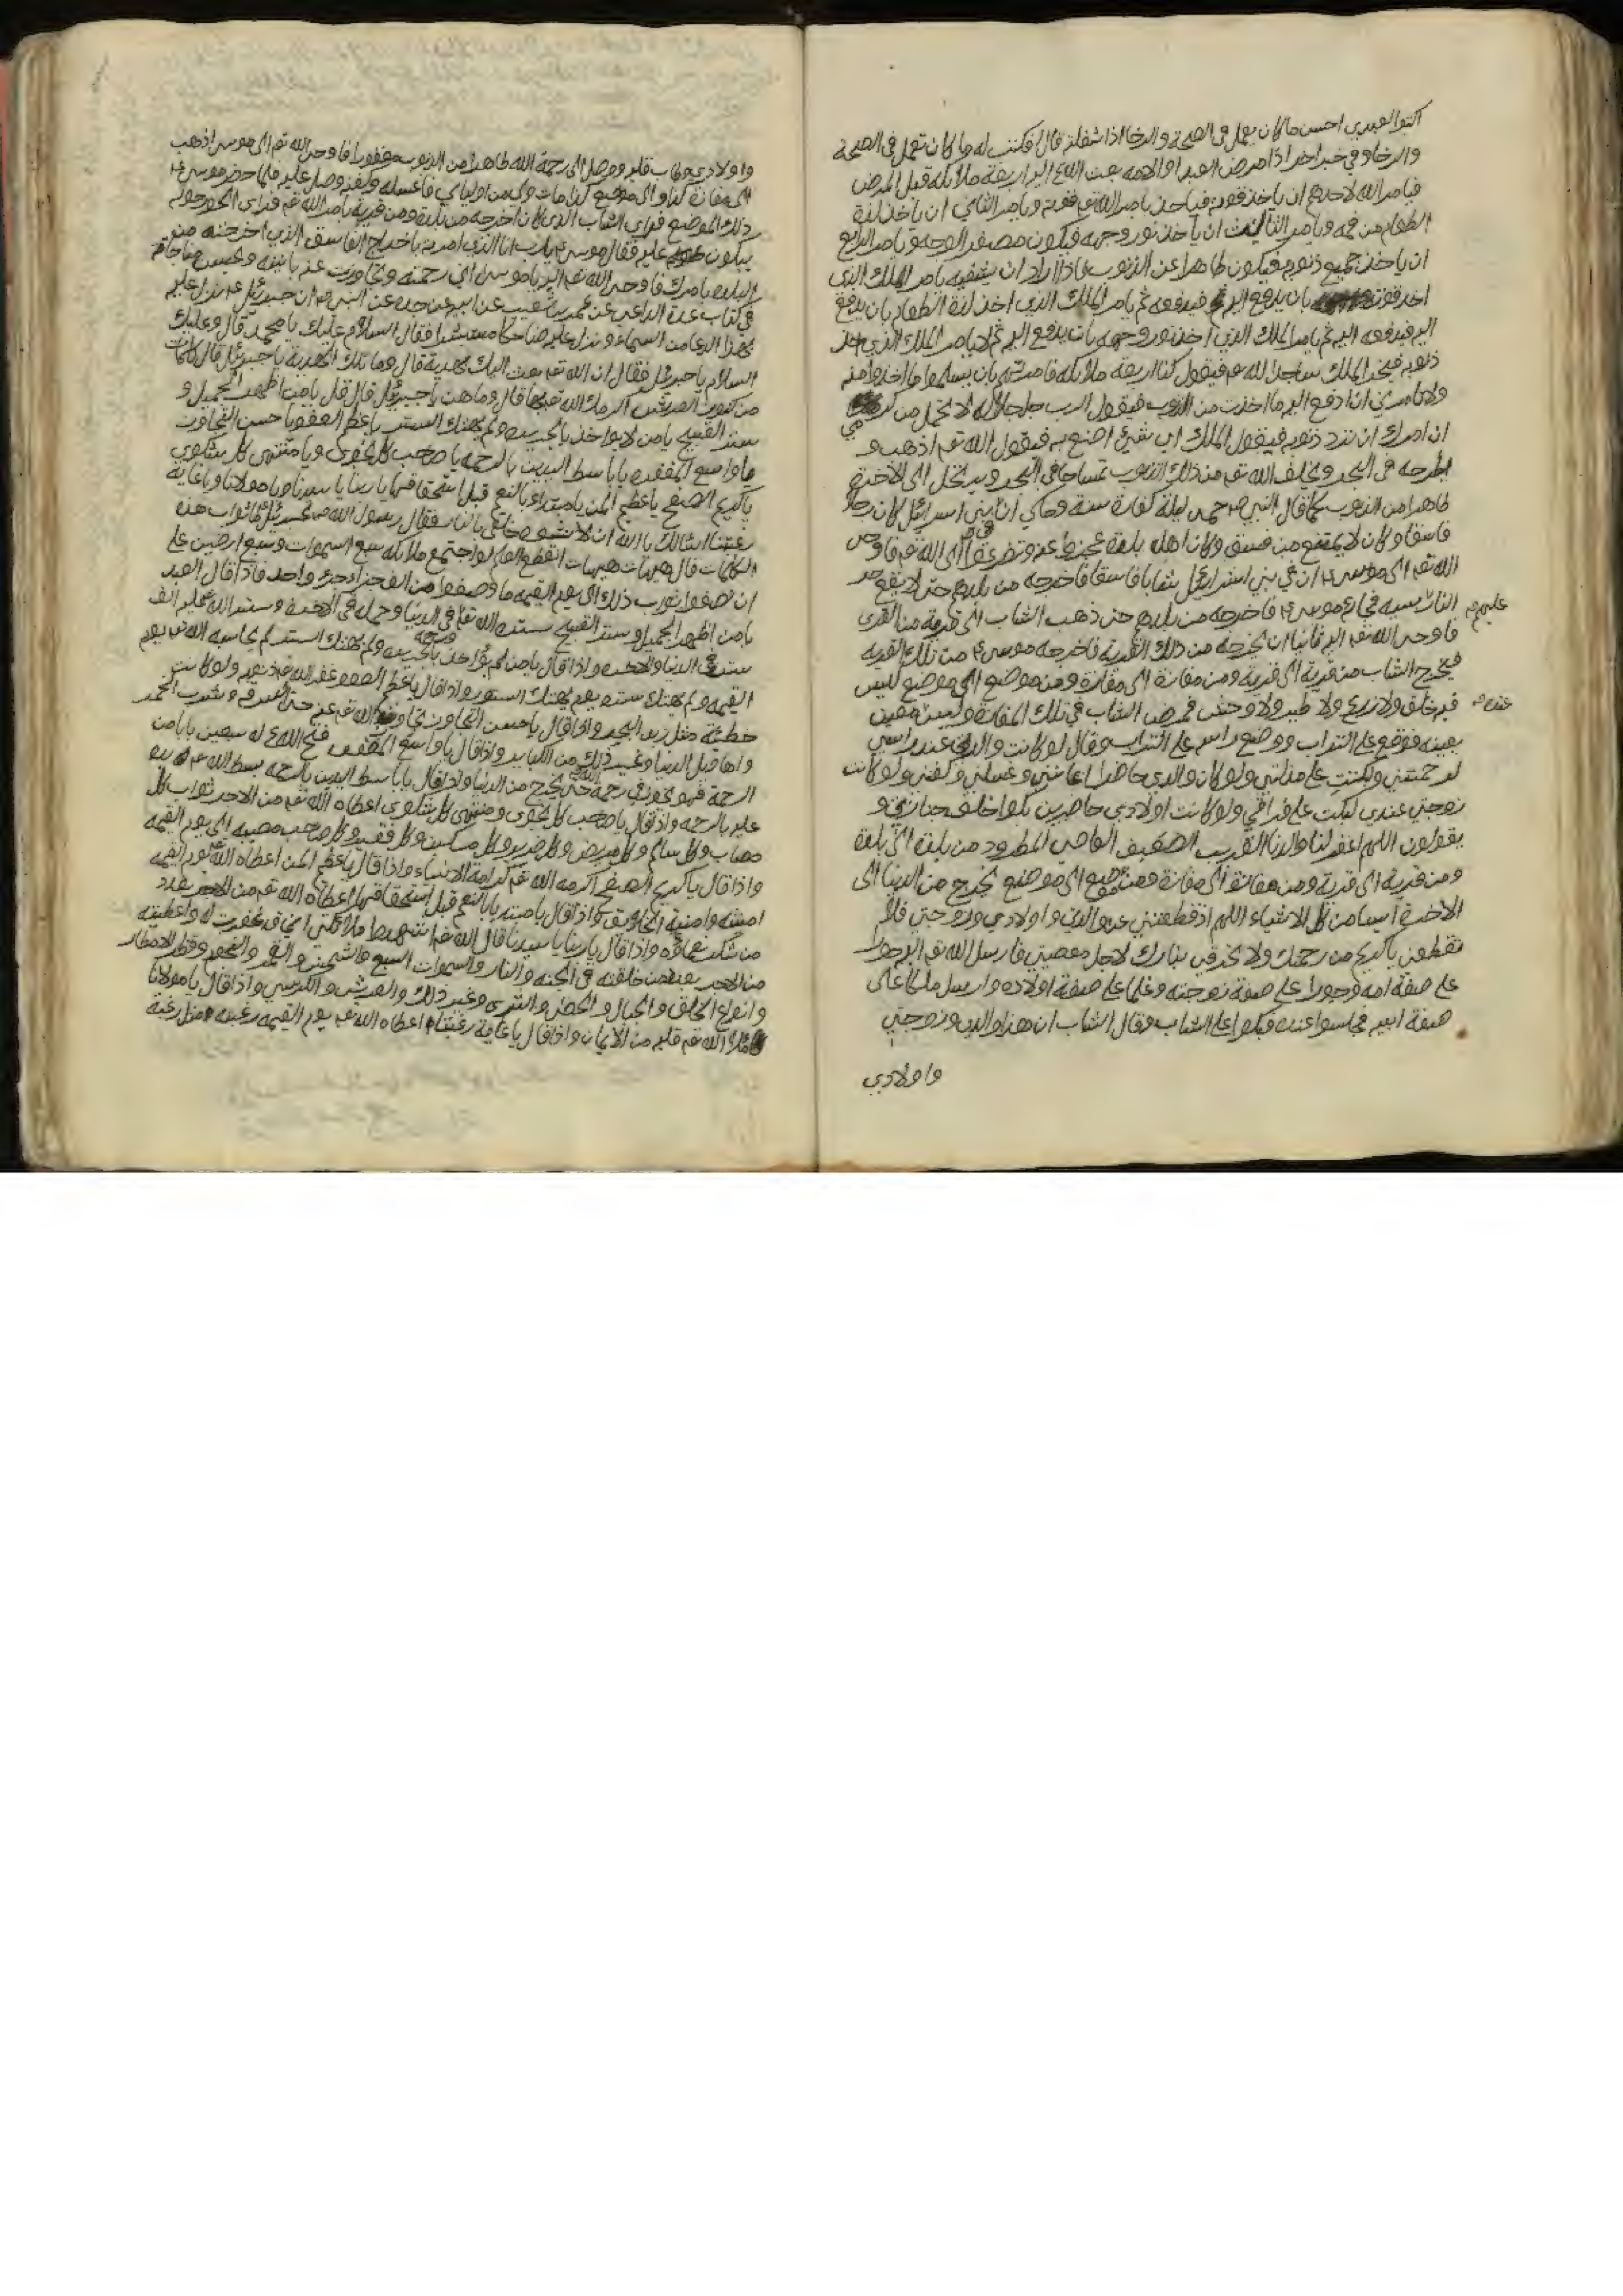 اكتبوا لعبدي احسن ما كان يعمل في الصحة والرخا اذا شغلته قال فكتب له ما كان تعمل في الصحة
والرخا وفي خبر اخر اذا مرض العبد او الامه بعث الله الیه اربعة ملائكة قبل المرض
فيامر الله لاحدهم ان ياخذ قوته فياخذ بامر الله تعه قوته ويامر الثاني ان ياخذ لذة
الطعام من فمه ويامر الثالث ان ياخذ نور وجهه فيكون مصفر الوجه ويامر الرابع
ان ياخذ جميع ذنوبه فيكون طاهرا عن الذنوب فاذا اراد ان يشفيه يامر الملك الذي
اخذ قوته بان يدفع اليه فيدفعه ثم يامر الملك الذي اخذ لذة الطعام بان يدفع
اليه فيدفعه اليه ثم يامر الملك الذي اخذ نور وجهه بان يدفع اليه ثم لا يامر الملك الذي اخذ
ذنوبه فيخر الملك ساجدا لله عم فيقول كنا اربعة ملائكة فامرتهم بان يسلموا ما اخذوا منه
ولا تامرني انا ادفع اليه ما اخذت من الذنوب فيقول الرب جل جلاله لا تحمل من كرمي
ان امرك ان ترد ذنوبه فيقول الملك اي شيئ اصنع به فيقول الله تعه اذهب و
اطرحه في البحر ويخلف الله تعه من ذلك الذنوب تمساحا في البحر ويدخل الى الاخرة
طاهرا من الذنوب كما قال النبي ص حمى ليلة كفارة سنة وحكي ان في بني اسرائل كان رجلا
فاسقا وكان لا يمتنع من فسق وكان اهل بلدة عجزوا عنه وتضرعوا الى الله تعه فاوحى
الله تعه الى موسى ع ان في بني اسرائيل شابا فاسقا فاخرجه من بلدهم حتى لا يقع
عليهم
النار بسببه فجاء موسى ع فاخرجه من بلدهم حتى ذهب الشاب الى قرية من القرى
فاوحى الله تعه اليه ثانيا ان يخرجه من ذلك القرية فاخرجه موسى ع من تلك القريه
فيخرج الشاب من قرية الى قرية ومن مفازة الى مفازة ومن موضع الى موضع ليس
فيه خلق ولا زرع ولا طير ولا وحش فمرض الشاب في تلك المفازة وليس معين
يعينه فوقع على التراب ووضع راسه على التراب وقال لو كانت والدتي عند راسي
لرحمتني ولبكت على مذلتي ولو كان والدي حاضرا اعانني وغسلني وكفنني ولو كانت
زوجتي عندي لبكت على فراقي ولو كانت اولادي حاضرين بكوا خلف جنازتي و
يقولون اللهم اغفر لنا والدنا الغريب الضعيف العاصي المطرود من بلدة الى بلدة
ومن قرية الى قرية ومن مفازة الى مفازة ومن موضع الى موضع يخرج من الدنيا الى
الاخرة ايسا من كل الاشياء اللهم اذ قطعتني عن والدي واولادي وزوجتي فلا
تقطعني يا كريم من رحمتك ولا تحرقني بنارك لاجل معصيتي فارسل الله تعه اليه حورا
على صفة امه وحورا على صفة زوجته وغلما على صفة اولاده وارسل ملكا على
صفة ابيه فجاسوا عنده فبكوا على الشاب وقال الشاب ان هذا والدي وزوجتي
واولادي
واولادي وطاب قلبه ووصل الى رحمة الله طاهرا من الذنوب مغفورا فاوحى الله تعه الى موسى اذهب
الى مفازة كذا والى موضع كذا مات ولي من اوليائي فاغسله وكفنه وصل عليه فلما حضر موسى ع
ذلك الموضع فراى الشاب الذي كان اخرجه من بلدة ومن قرية بامر الله تعه فراى الحور حوله
يبكون عليه فقال موسى ع يا رب انا الذي امرت باخراج الفاسق الذي اخرجته من
البلده بامرك فاوحى الله تعه اليه يا موسى اني رحمته وتجاوزت عنه
في كتاب عدة الداعي عن عمر بن شعيب عن ابيه عن جده عن النبي ص ان جبرئيل ع نزل عليه
بهذا الدعا من السماء ونزل عليه ضاحكا مستبشرا فقال السلام عليك يا محمد قال وعليك
السلام يا جبرئيل فقال ان الله تعه بعث اليك بهدية قال وما تلك الهدية يا جبرئيل قال كلمات
من كنوز العرش اكرمك الله تعه بها قال وما هن يا جبرئيل قال قل يا من اظهر الجميل و
ستر القبيح يا من لا يواخذ بالجريره ولم يهتك الستر يا عظيم العفو يا حسن التجاوز
يا واسع المغفره يا باسط اليدين بالرحمه يا صاحب كل نجوى ويا منتهى كل شكوى
يا كريم الصفح يا عظيم المن يا مبتداء بالنعم قبل استحقاقها يا ربنا يا سيدنا ويا مولانا ويا غاية
رغبتنا اسالك يا الله ان لا تشوه خلقي بالنار فقال رسول الله ص لجبرئيل ما ثواب هذه
الكلمات قال هيهات هيهات انقطع العلم لو اجتمع ملائكه سبع السموات وسبع ارضين على
ان تصفوا ثواب ذلك الى يوم القيمه ما وصفوا من الف جزء جزء واحد فاذا قال العبد
يا من اظهر الجميل وستر القبيح ستره الله تعه في الدنيا وجمله في الاخره وستر الله عليه الف
ستر في الدنيا والاخره واذا قال يا من لم يواخذ بالجريره ولم يهتك الستر لم يحاسبه الله تعه يوم
القيمه ولم يهتك ستره يوم يهتك الستور واذا قال يا عظيم العفو غفر الله تعه ذنوبه ولو كانت
خطيئة مثل زبد البحر واذا قال يا حسن التجاوز تجاوز الله تعه عنه حتى السرقه وشرب الخمر
واهاويل الدنيا وغير ذلك من الكباير واذا قال يا واسع المغفره فتح الله ع له سبعين بابا من
الرحمة فهو يخوض في رحمة حتى يخرج من الدنيا واذا قال يا باسط اليدين بالرحمه بسط الله عم يده
عليه بالرحمه واذا قال يا صاحب كل نجوى ومنتهى كل شكوى اعطاه الله تعه من الاجر ثواب كل
مصاب وكل سالم وكل مريض وكل ضرير وكل مسكين وكل فقير وكل صاحب مصيبه الى يوم القيمه
واذا قال يا كريم الصفح اكرمه الله تعه كرامة الانبياء واذا قال يا عظيم المن اعطاه الله يوم القيمه
امنيته وامنية الخلايق واذا قال يا مبتديا بالنعم قبل استحقاقها اعطاه الله تعه من الاجر بعدد
من شكر نعماؤه واذا قال يا ربنا يا سيدنا قال الله تعه اشهدوا ملائكتي اني قد غفرت له واعطيته
من الاجر بعدد من خلقته في الجنه والنار والسموات السبع والشمس والقمر والنجوم وقطر الامطار
وانواع الخلق والجبال والحصى والثرى وغير ذلك والعرش والكرسي واذا قال يا مولانا
ملاء الله تعه قلبه من الايمان واذا قال يا غاية رغبتنا اعطاه الله تعه يوم القيمه رغبته مثل رغبة